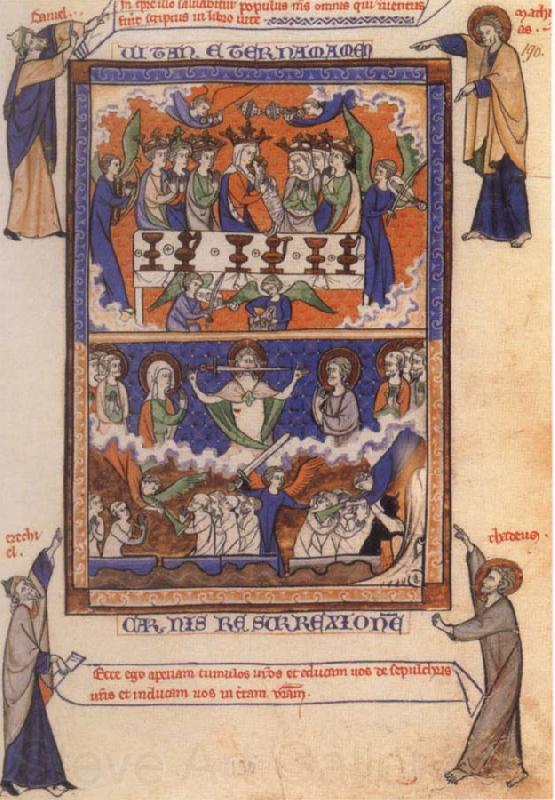 Daniel.
In tpre illo saluabitur populus tuus omnis qui inuentus
fuit scriptus in libro uite
mathi
as.
190.
UITAN ETERNAM AMEN
ezechi
el.
thadeus.
CARNIS RESURREXIONE
Ecce ego aperiam tumulos uros et educam uos de sepulchris
uris et inducam uos in tram uram.
139
Steve Art Gallery